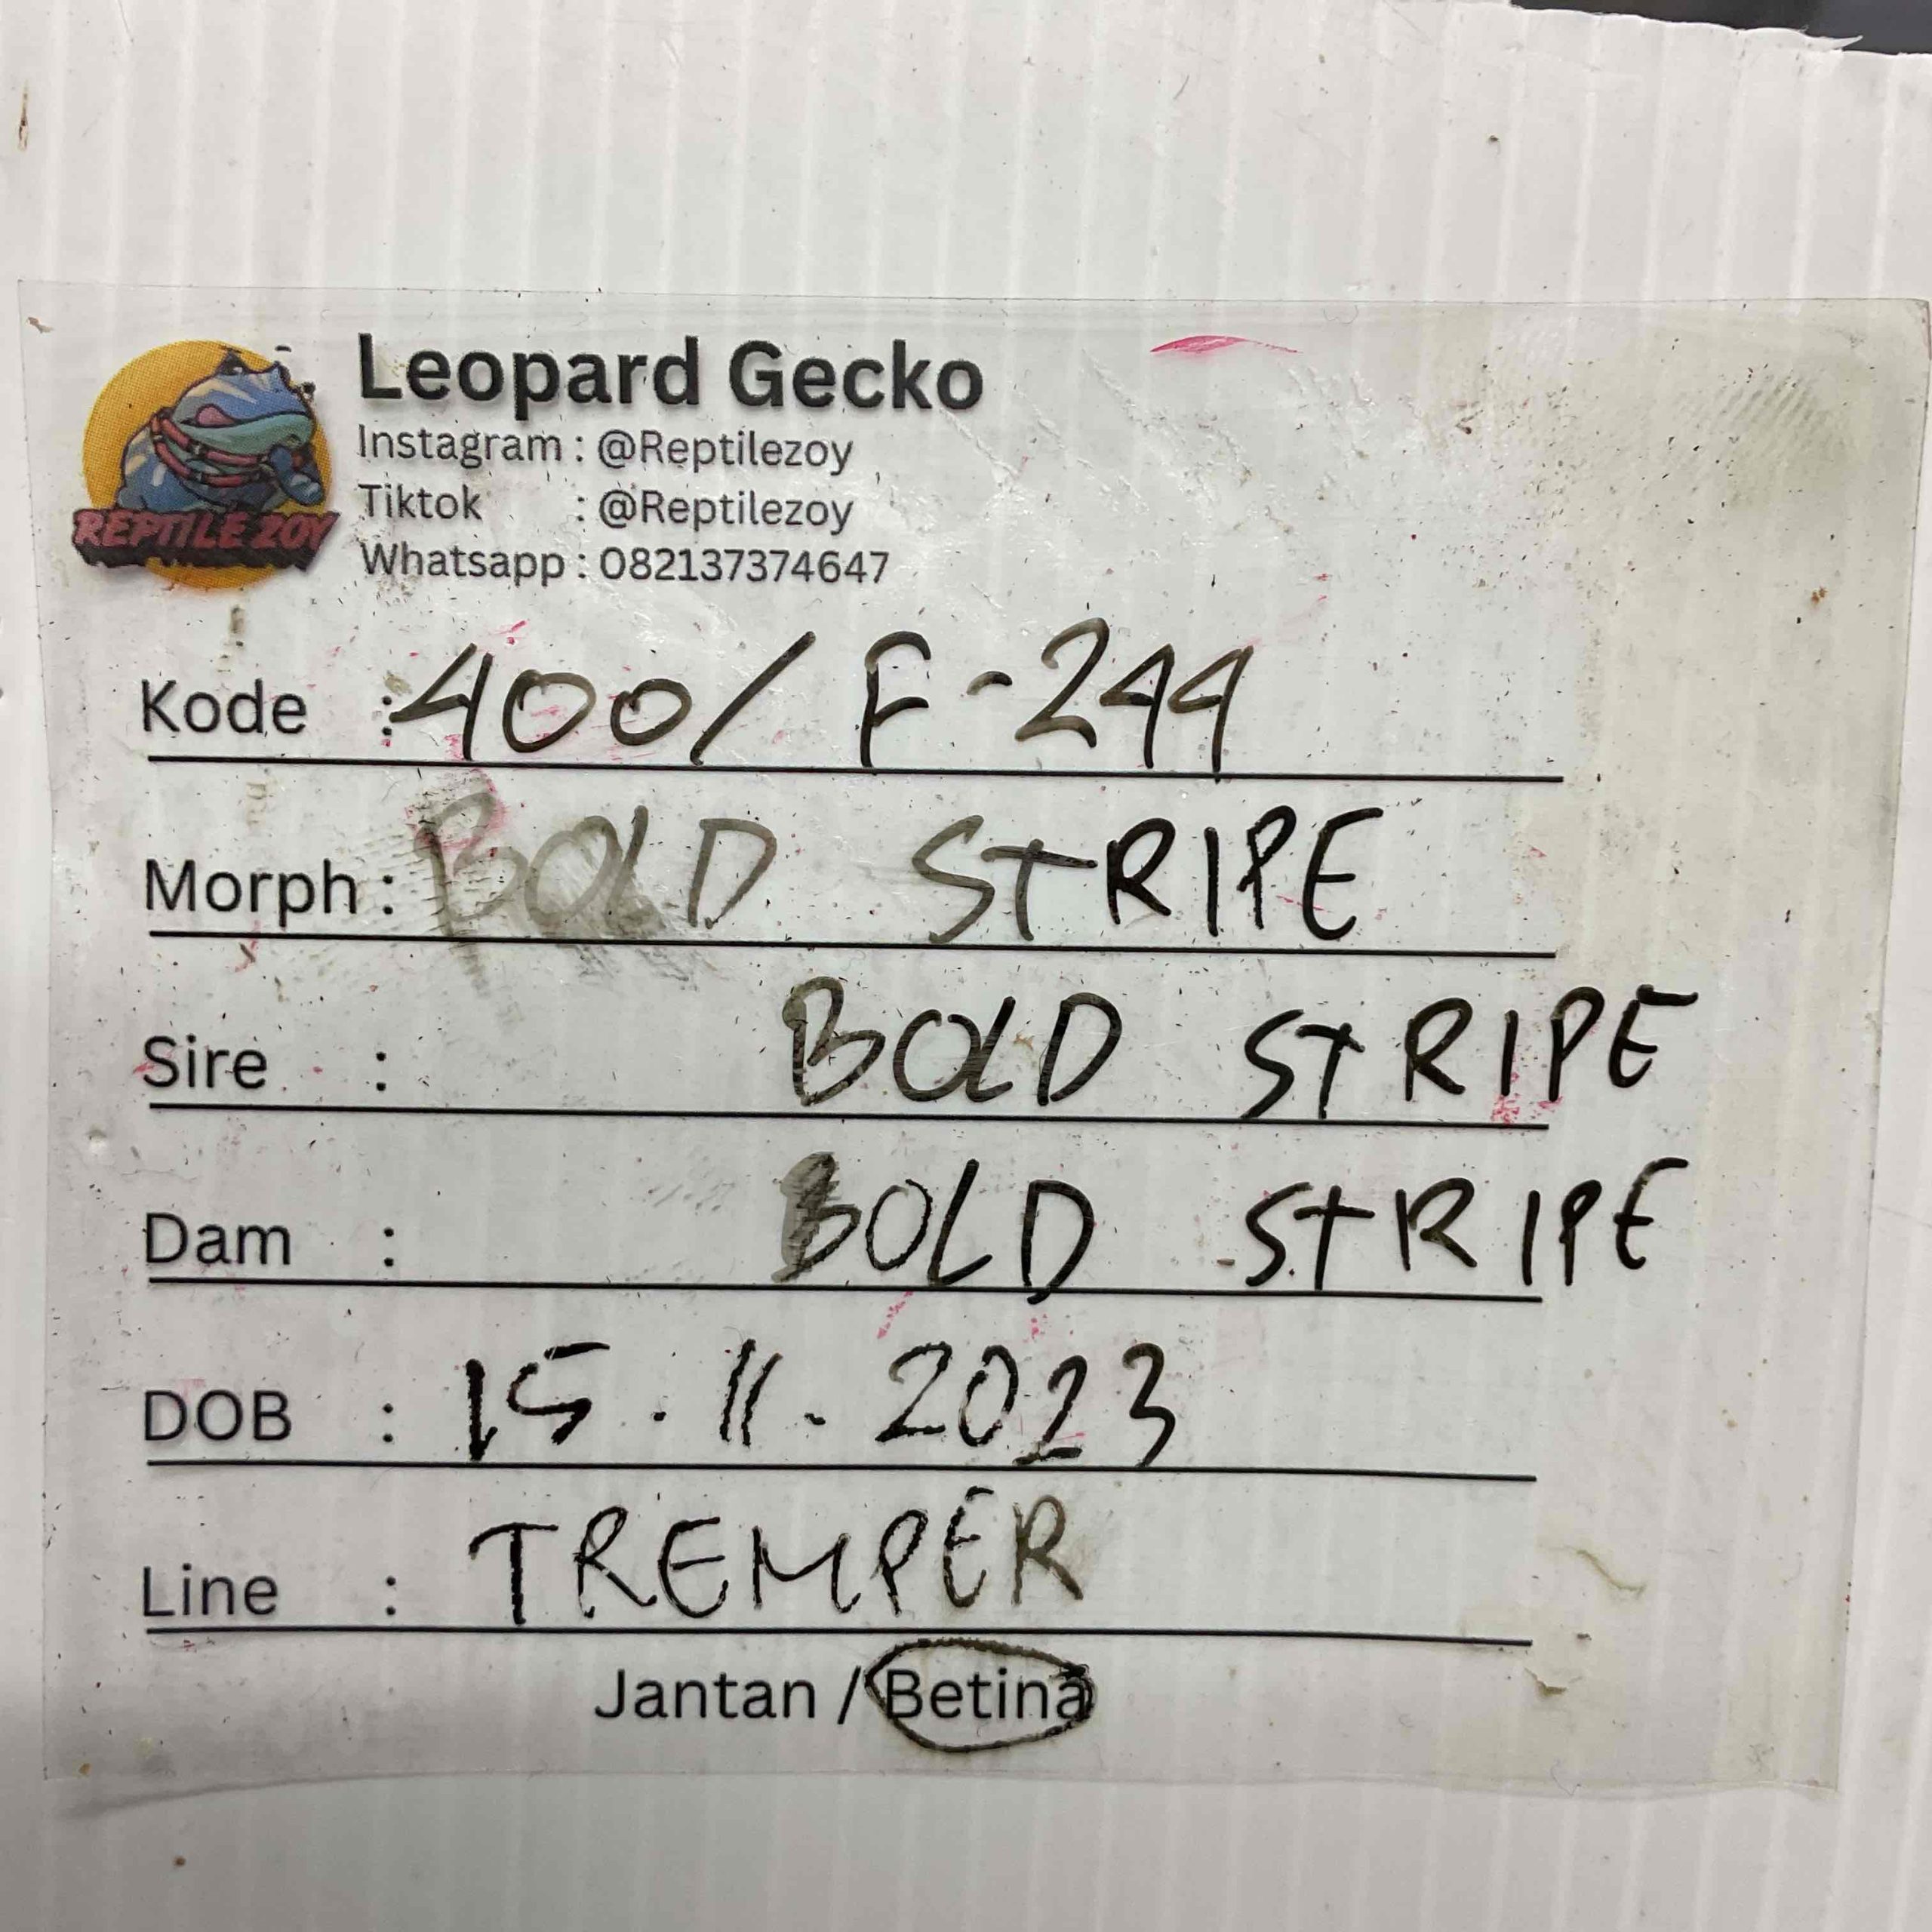 REPTILE ZOY
Leopard Gecko
Instagram : @Reptilezoy
Tiktok : @Reptilezoy
Whatsapp : 082137374647
Kode : 400/ F-244
Morph : BOLD STRIPE
Sire : BOLD STRIPE
Dam : BOLD STRIPE
DOB : 15.11.2023
Line : TREMPER
Jantan / Betina